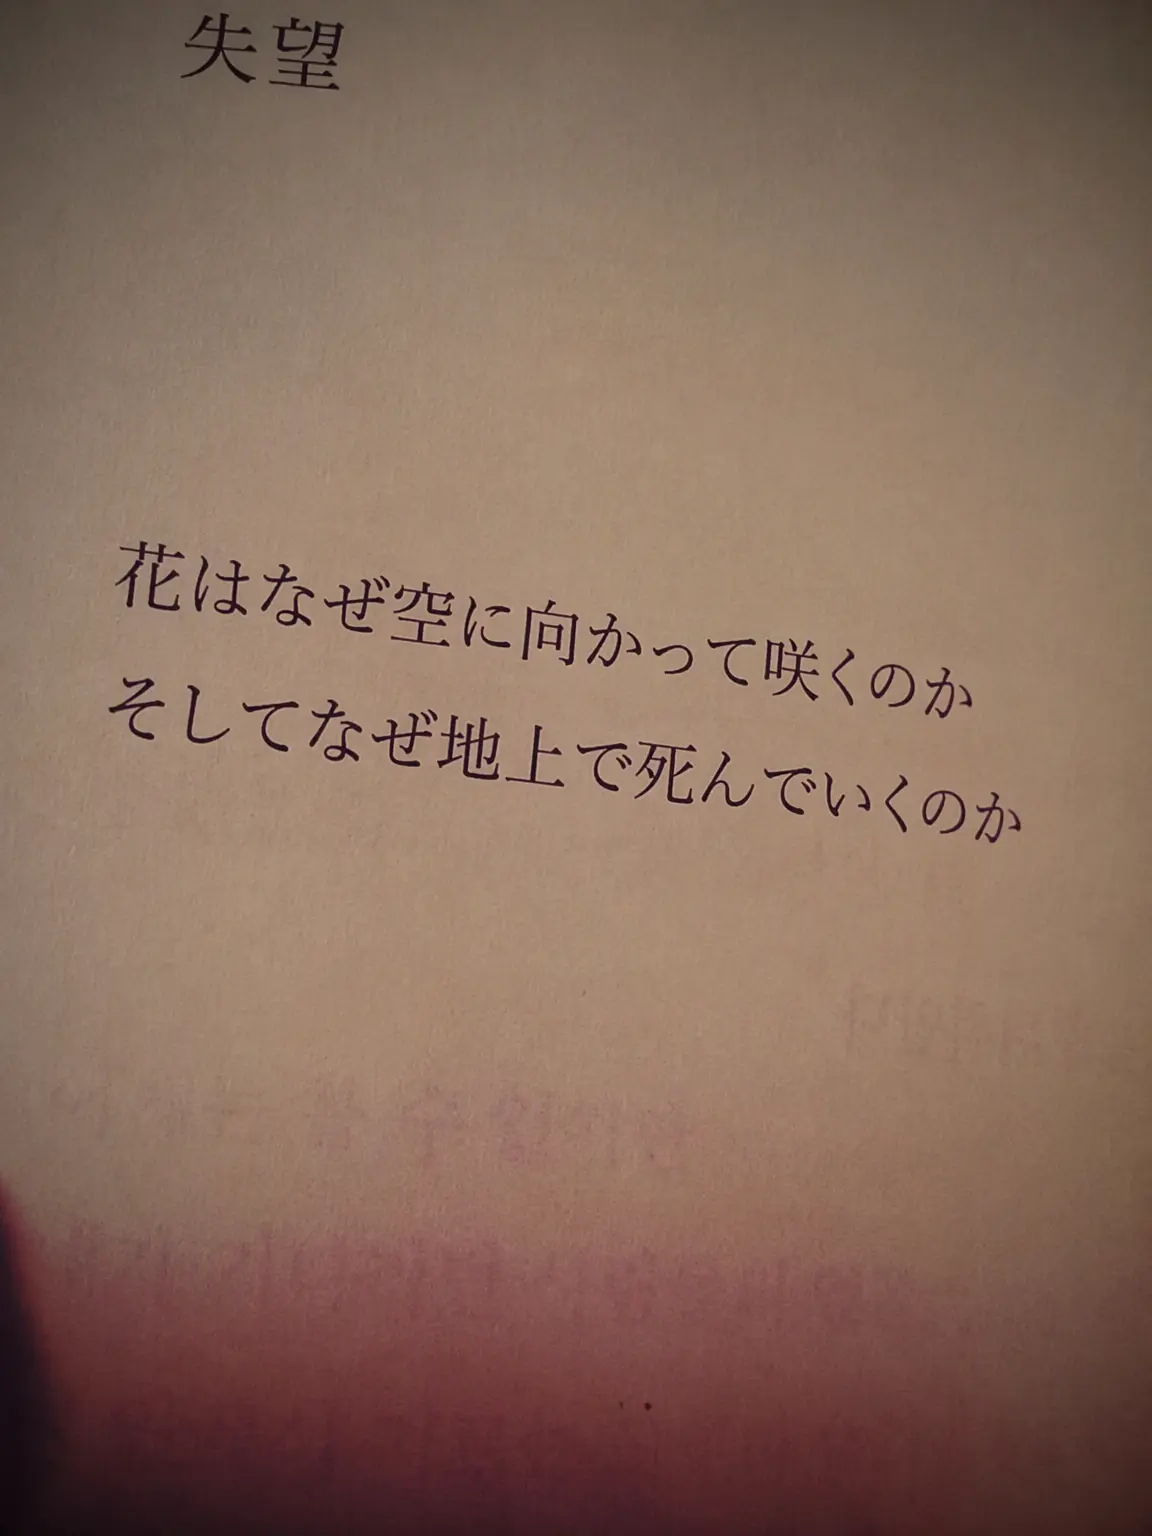 失望
花はなぜ空に向かって咲くのか
そしてなぜ地上で死んでいくのか